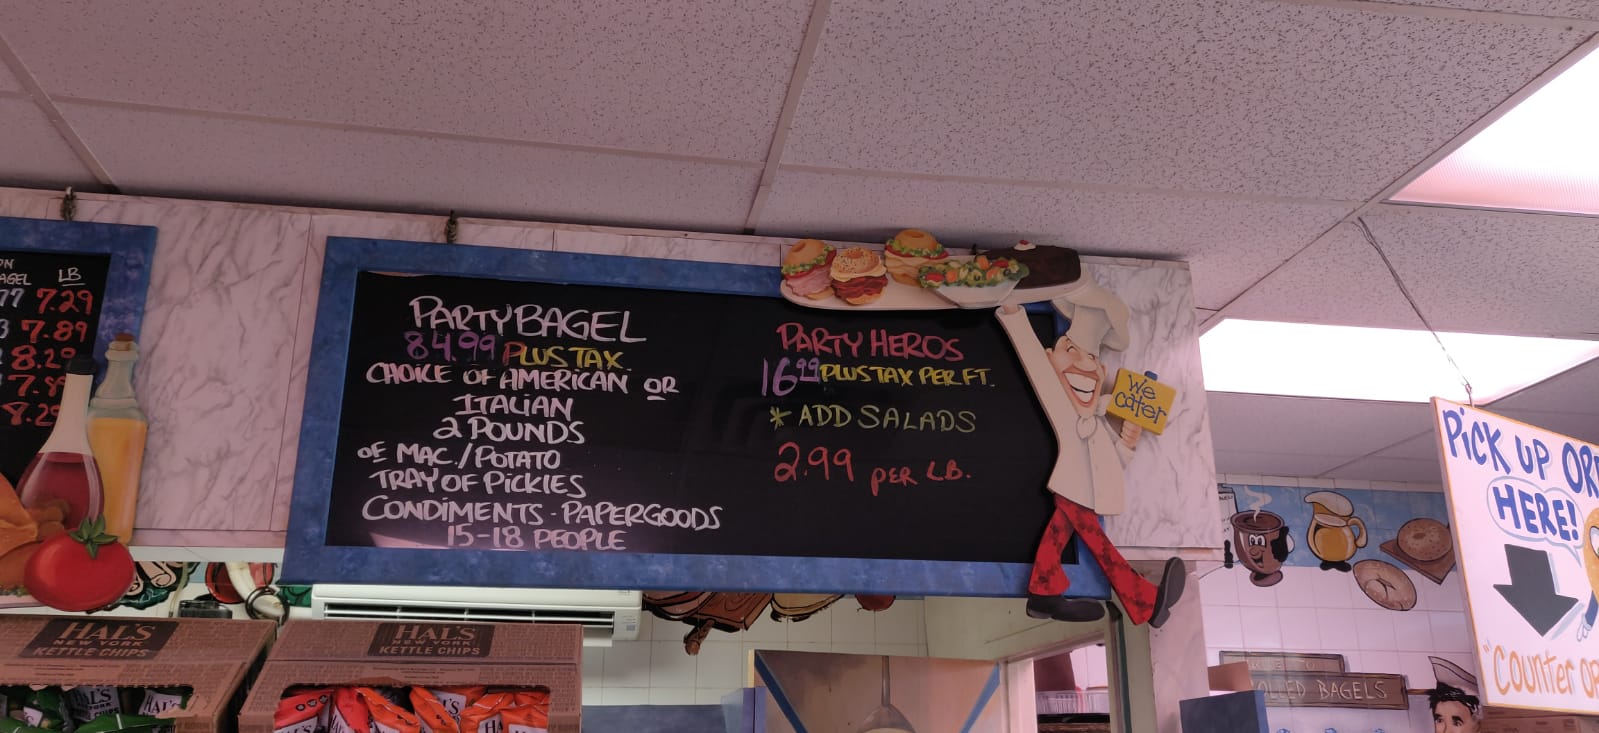 LB
7.29
7.89
8.29
PARTY BAGEL
84.99 PLUS TAX.
CHOICE OF AMERICAN OR
ITALIAN
2 POUNDS
OF MAC./POTATO
TRAY OF PICKIES
CONDIMENTS - PAPERGOODS
15-18 PEOPLE
PARTY HEROS
16.99 PLUS TAX PER FT.
* ADD SALADS
2.99 PER LB.
We
Cater
PICK UP
HERE!
"COUNTER
ROLLED BAGELS
HAL'S
NEW YORK
KETTLE CHIPS
HAL'S
NEW YORK
KETTLE CHIPS
HAL'S
HAL'S